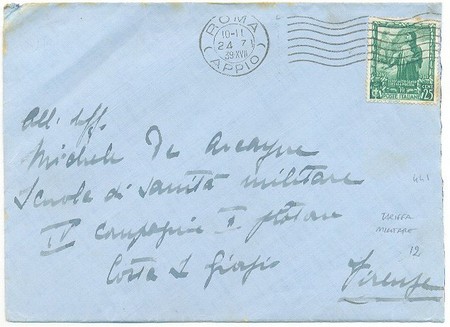 ROMA
10-11.
24 7
39 XVII
(APPIO)
POSTE ITALIANE
CENT 25
All.
Michele De
Scuola di Sanità militare
IV compagnia I plotone
Costa S Giorgio
Firenze
TARIFFA
MILITARE
12